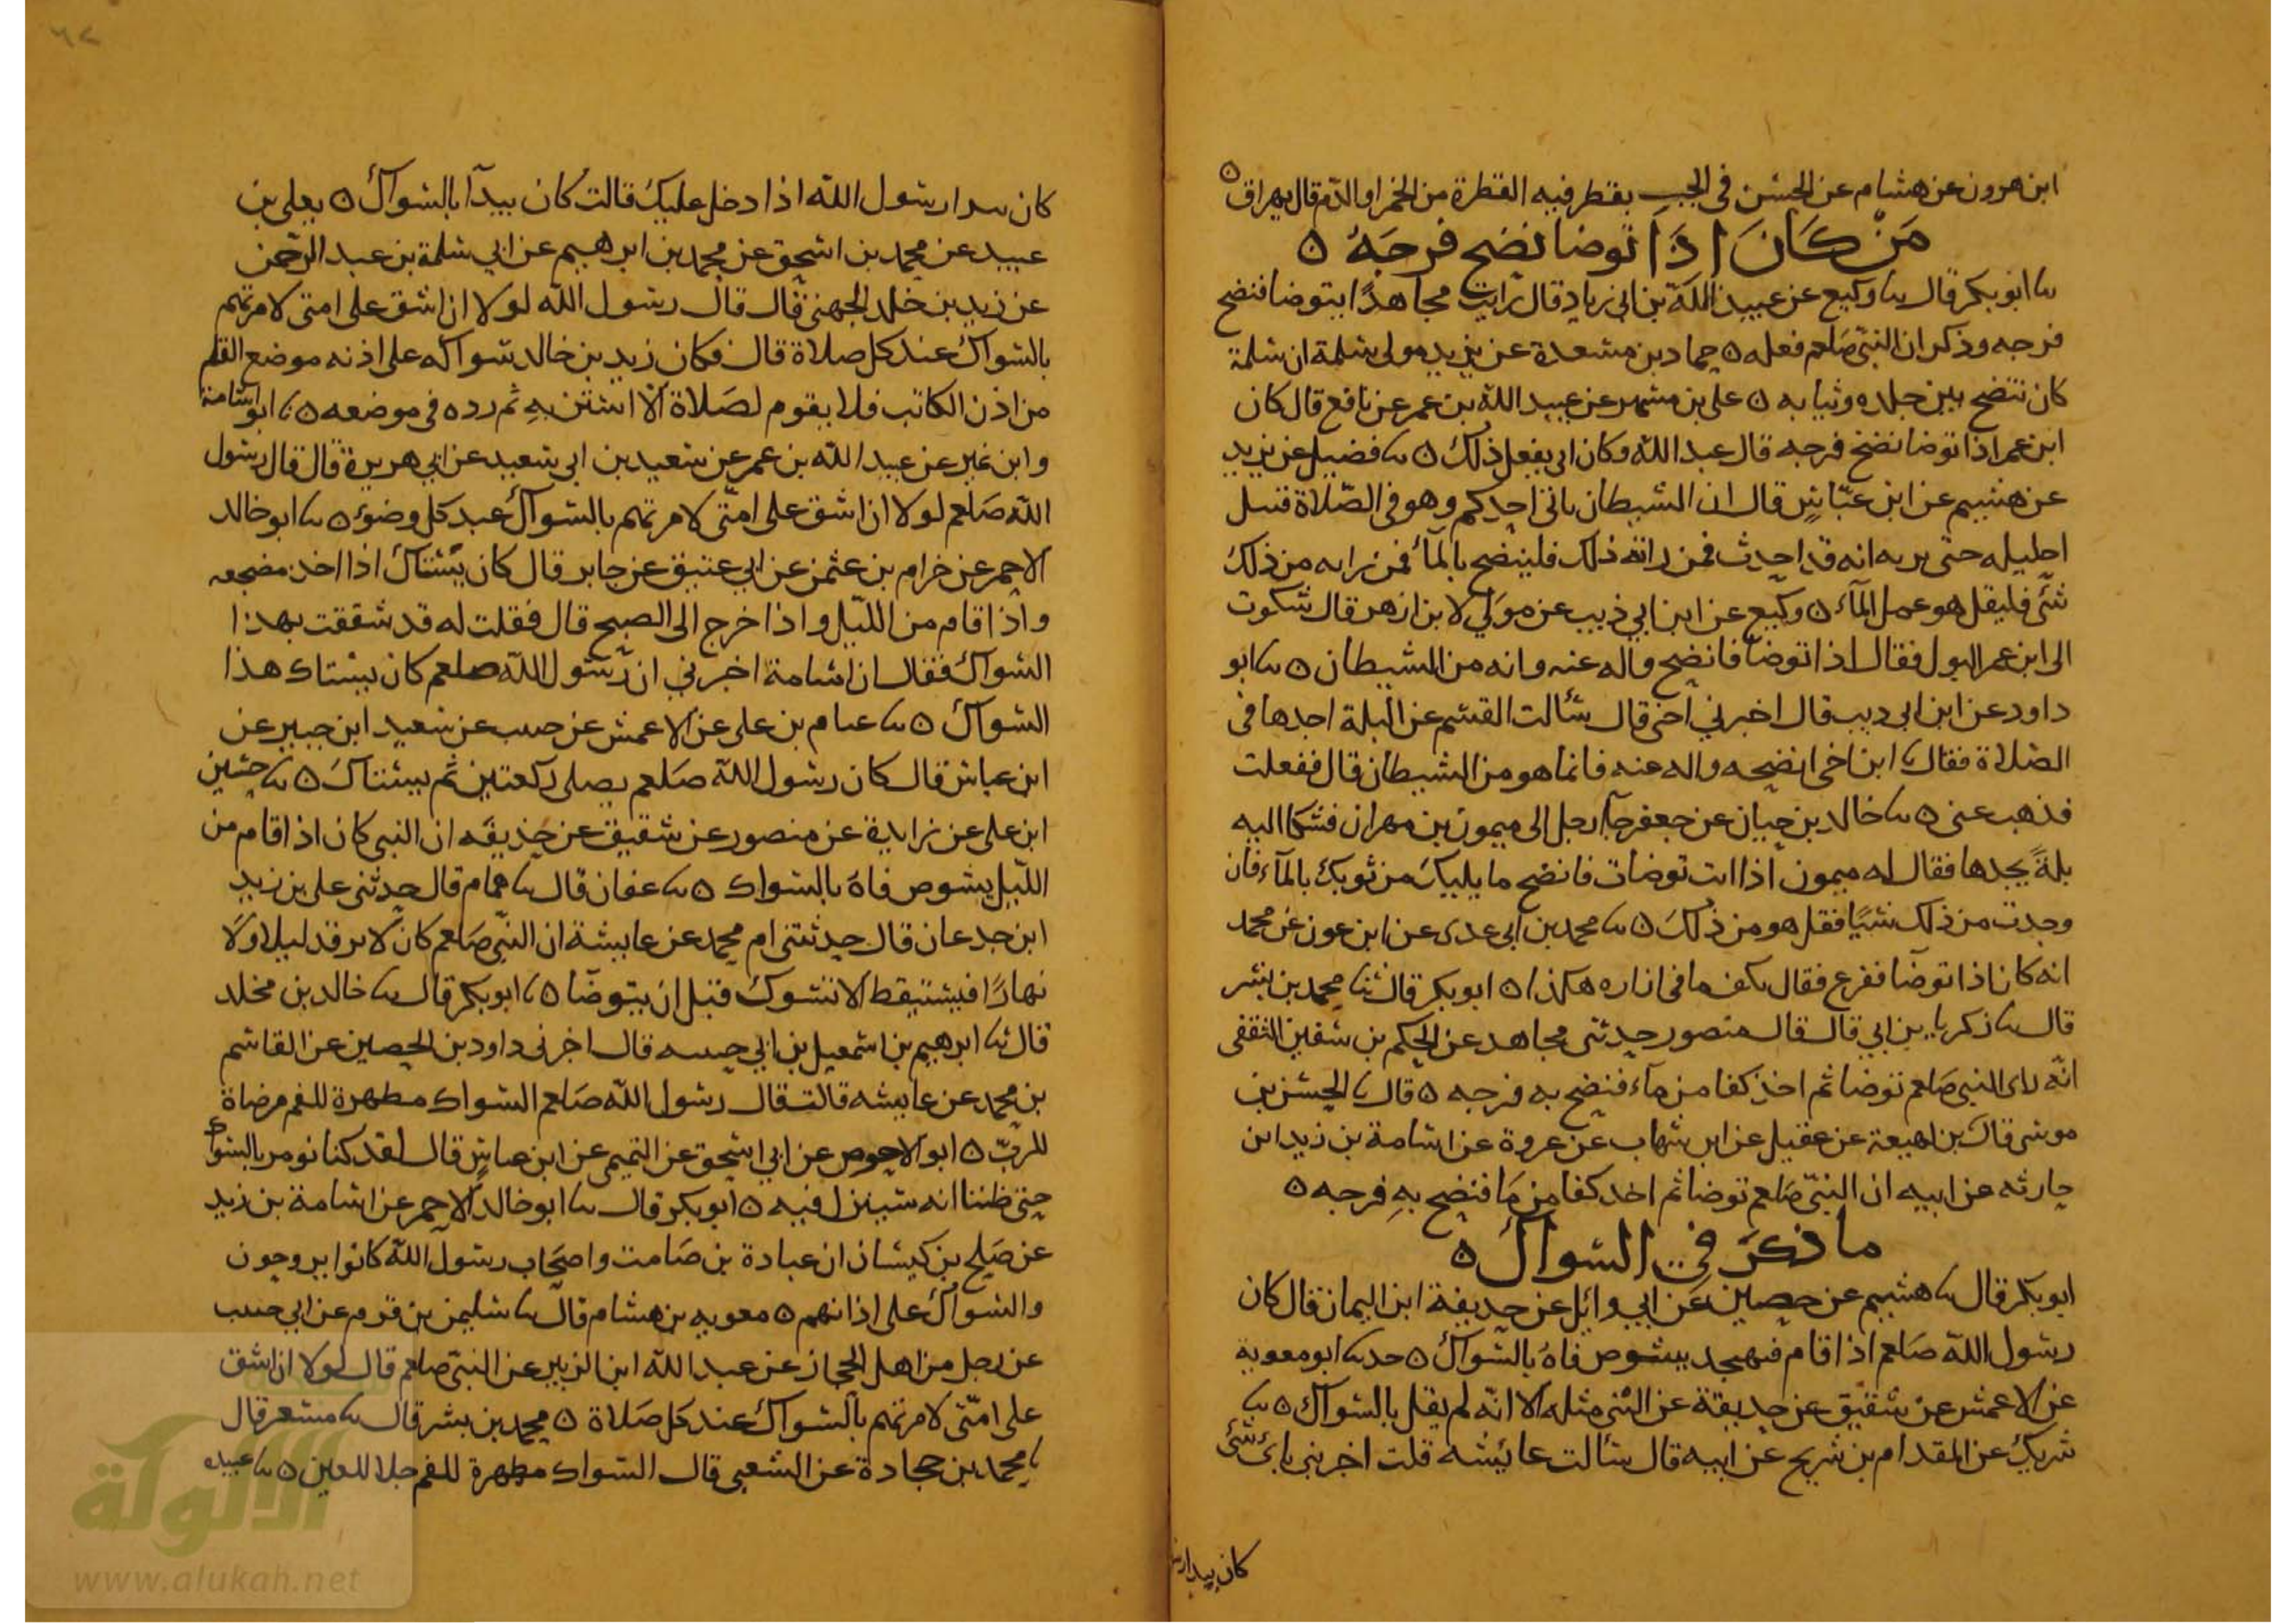 ابن هرون عن هشام عن الحسن في الجب يقطر فيه القطرة من الخمر او الدم قال يهراق ه
مَنْ كَانَ اذَا توضا نضح فرجَهُ ه
ثنا ابو بكر قال ثنا وكيع عن عبيد الله بن ابي زياد قال رايت مجاهدًا يتوضا فنضح
فرجه وذكر ان النبي صلعم فعله ه حماد بن مسعدة عن يزيد مولى سلمة ان سلمة
كان تنضح بين جلده وثيابه ه علي بن مسهر عن عبيد الله بن عمر عن نافع قال كان
ابن عمر اذا توضا نضح فرجه قال عبد الله وكان ابي يفعل ذلك ه ثنا فضيل عن يزيد
عن هشيم عن ابن عباس قال ان الشيطان ياتي احدكم وهو في الصلاة فيبل
احليله حتى يريه انه قد احدث فمن رابه ذلك فلينضح بالمآء فمن رابه من ذلك
شيء فليقل هو عمل المآء ه وكيع عن ابن ابي ذيب عن مولى لابن ازهر قال شكوت
الى ابن عمر البول فقال اذا توضا فانضح واله عنه وانه من الشيطان ه ثنا ابو
داود عن ابن ابي ديب قال اخبرني اخي قال سألت القسم عن البلة اجدها في
الصلاة فقال يا ابن اخي انضحه واله عنه فانما هو من الشيطان قال ففعلت
فذهب عني ه ثنا خالد بن حيان عن جعفر جآ رجل الى ميمون بن مهران فشكا اليه
بلةً يجدها فقال له ميمون اذا انت توضات فانضح ما يليك من ثوبك بالمآء فان
وجدت من ذلك شيًا فقل هو من ذلك ه ثنا محمد بن ابي عدى عن ابن عون عن محمد
انه كان اذا توضا ففرغ فقال بكف ما في ازاره هكذا ه ابو بكر قال ثنا محمد بن بشر
قال ثنا زكريا بن ابي قال قال منصور حدثني مجاهد عن الحكم بن سفين الثقفي
انه راى النبي صلعم توضا ثم اخذ كفا من مآء فنضح به فرجه ه قال ثنا الحسن بن
موسى قال بن لهيعة عن عقيل عن ابن شهاب عن عروة عن اسامة بن زيد ابن
حارثه عن ابيه ان النبي صلعم توضا ثم اخد كفا من مَا فنضح بهِ فرجه ه
ما ذكرَ في السواك ه
ابو بكر قال ثنا هشيم عن حصين عن ابي وائل عن حديفة ابن اليمان قال كان
رسول الله صلعم اذا قام فيهجد يشوص فاهُ بالسواك ه حدثنا ابو معوية
عن الاعمش عن شقيق عن حديفة عن النبي مثله الا انه لم يقل بالسواك ه ثنا
شريك عن المقدام بن شريح عن ابيه قال سألت عائشه قلت اخبريني باي شئ
كان يبدا رس
كان يبدا رسول الله اذا دخل عليك قالت كان يبدآ بالسواك ه يعلى بن
عبيد عن محمد بن اسحق عن محمد بن ابرهيم عن ابي سلمة بن عبد الرحمن
عن زيد بن خلد الجهني قال قال رسول الله لولا ان اشق على امتي لامرتهم
بالسواك عند كل صلاة قال فكان زيد بن خالد سواكه على اذنه موضع القلم
من اذن الكاتب فلا يقوم لصلاة الا استن بهِ ثم رده في موضعه ه ثنا ابو اسامة
وابن نمير عن عبيد الله بن عمر عن سعيد بن ابي سعيد عن ابي هريرة قال قال رسول
الله صلعم لولا ان اشق على امتي لامرتهم بالسواك عند كل وضوء ه ثنا ابو خالد
الاحمر عن خرام بن عثمن عن ابي عتيق عن جابر قال كان يستاك اذا اخذ مضجعه
واذا قام من الليل واذا خرج الى الصبح قال فقلت له قد شققت بهذا
السواك فقال ان اسامة اخبرني ان رسول الله صلعم كان يستاك هذا
السواك ه ثنا عثام بن علي عن الاعمش عن حبيب عن سعيد ابن جبير عن
ابن عباس قال كان رسول الله صلعم يصلي ركعتين ثم يستاك ه ثنا حسين
ابن علي عن زايدة عن منصور عن شقيق عن حذيفه ان النبي كان اذا قام من
الليل يشوص فاهُ بالسواك ه ثنا عفان قال ثنا همام قال حدثني علي بن زيد
ابن جدعان قال حدثتني ام محمد عن عايشة ان النبي صلعم كان لا يرقد ليلا ولا
نهارًا فيستيقظ الا تسوك قبل ان يتوضا ه ثنا ابو بكر قال ثنا خالد بن مخلد
قال ثنا ابرهيم بن اسمعيل بن ابي حبيبه قال اخبرني داود بن الحصين عن القاسم
بن محمد عن عايشه قالت قال رسول الله صلعم السواك مطهرة للفم مرضاة
للرب ه ابو الاحوص عن ابي اسحق عن التميمي عن ابن عباس قال لقد كنا نومر بالسواك
حتى ظننا انه سينزل فيه ه ابو بكر قال ثنا ابو خالد الاحمر عن اسامة بن زيد
عن صلح بن كيسان ان عبادة بن صامت واصحاب رسول الله كانوا يروحون
والسواك على اذانهم ه معويه بن هشام قال ثنا سليمن بن قرم عن ابي حبيب
عن رجل من اهل الحجاز عن عبد الله ابن الزبير عن النبي صلعم قال لولا ان اشق
على امتي لامرتهم بالسواك عند كل صلاة ه محمد بن بشر قال ثنا مسعر قال
ثنا محمد بن حجادة عن الشعبي قال السواك مطهرة للفم جلا للعين ه ثنا عبيده
الألوكة
www.alukah.net